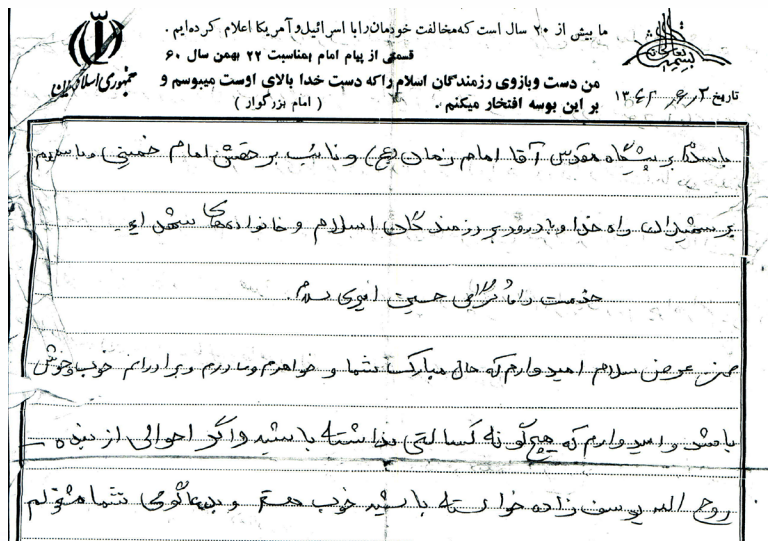 بسمه تعالی
ما بیش از ۲۰ سال است که مخالفت خودمان را با اسرائیل و آمریکا اعلام کرده‌ایم.
قسمتی از پیام امام بمناسبت ۲۲ بهمن سال ۶۰
من دست و بازوی رزمندگان اسلام را که دست خدا بالای اوست میبوسم و
بر این بوسه افتخار میکنم. (امام بزرگوار)
جمهوری اسلامی ایران
تاریخ ۲ر۶ر۱۳۶۲
با سلام بر پیشگاه مقدس آقا امام زمان (عج) و نائب بر حقش امام خمینی و با سلام
بر شهیدان راه خدا و با درود بر رزمندگان اسلام و خانواده‌های شهداء.
خدمت گرامی حسین امیری سلام.
ضمن عرض سلام امیدوارم که حال مبارک شما و خواهرم و مادرم و برادرانم خوب و خوش
باشد و امیدوارم که هیچ‌گونه کسالتی نداشته باشید و اگر احوالی از بنده
روح الله یوسف زاده خواسته باشید خوب هستم و بدعاگوئی شما مشغولم